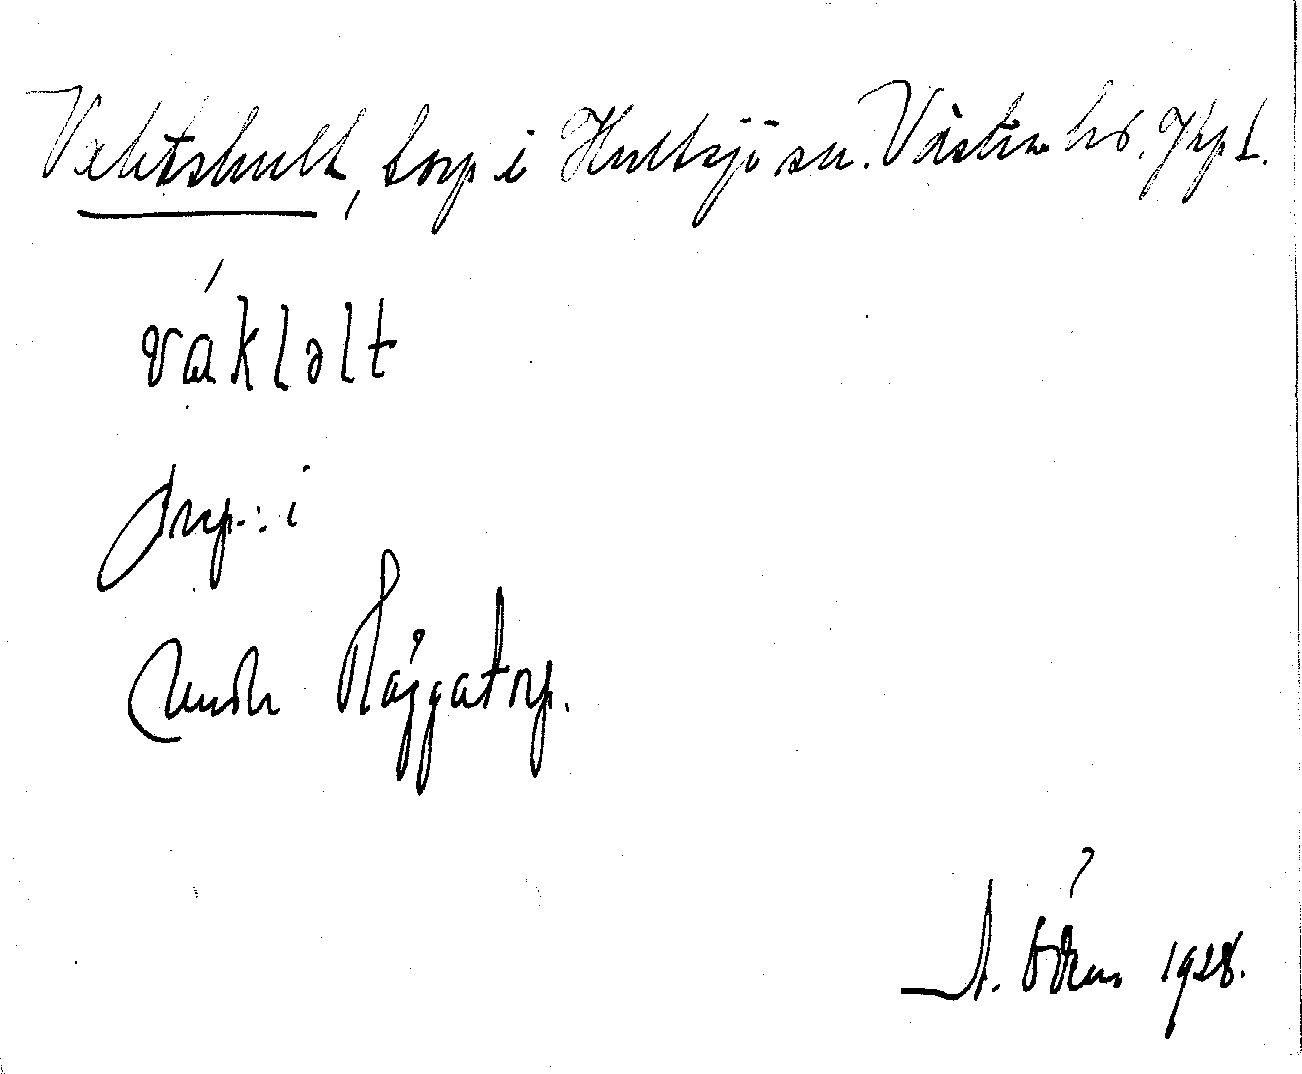 Vektshult, torp i Hultsjö sn. Västra hd. Jkp L.
váklǝlt
torp: i
under Häjgatorp.
1928.